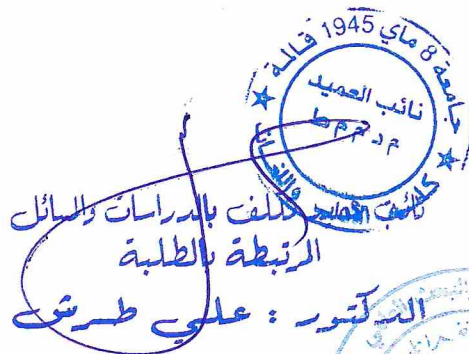 جامعة 8 ماي 1945 قالمة
نائب العميد
م د م م ط
كلية
نائب العميد المكلف بالدراسات والمسائل
المرتبطة بالطلبة
الدكتور : علي طرش